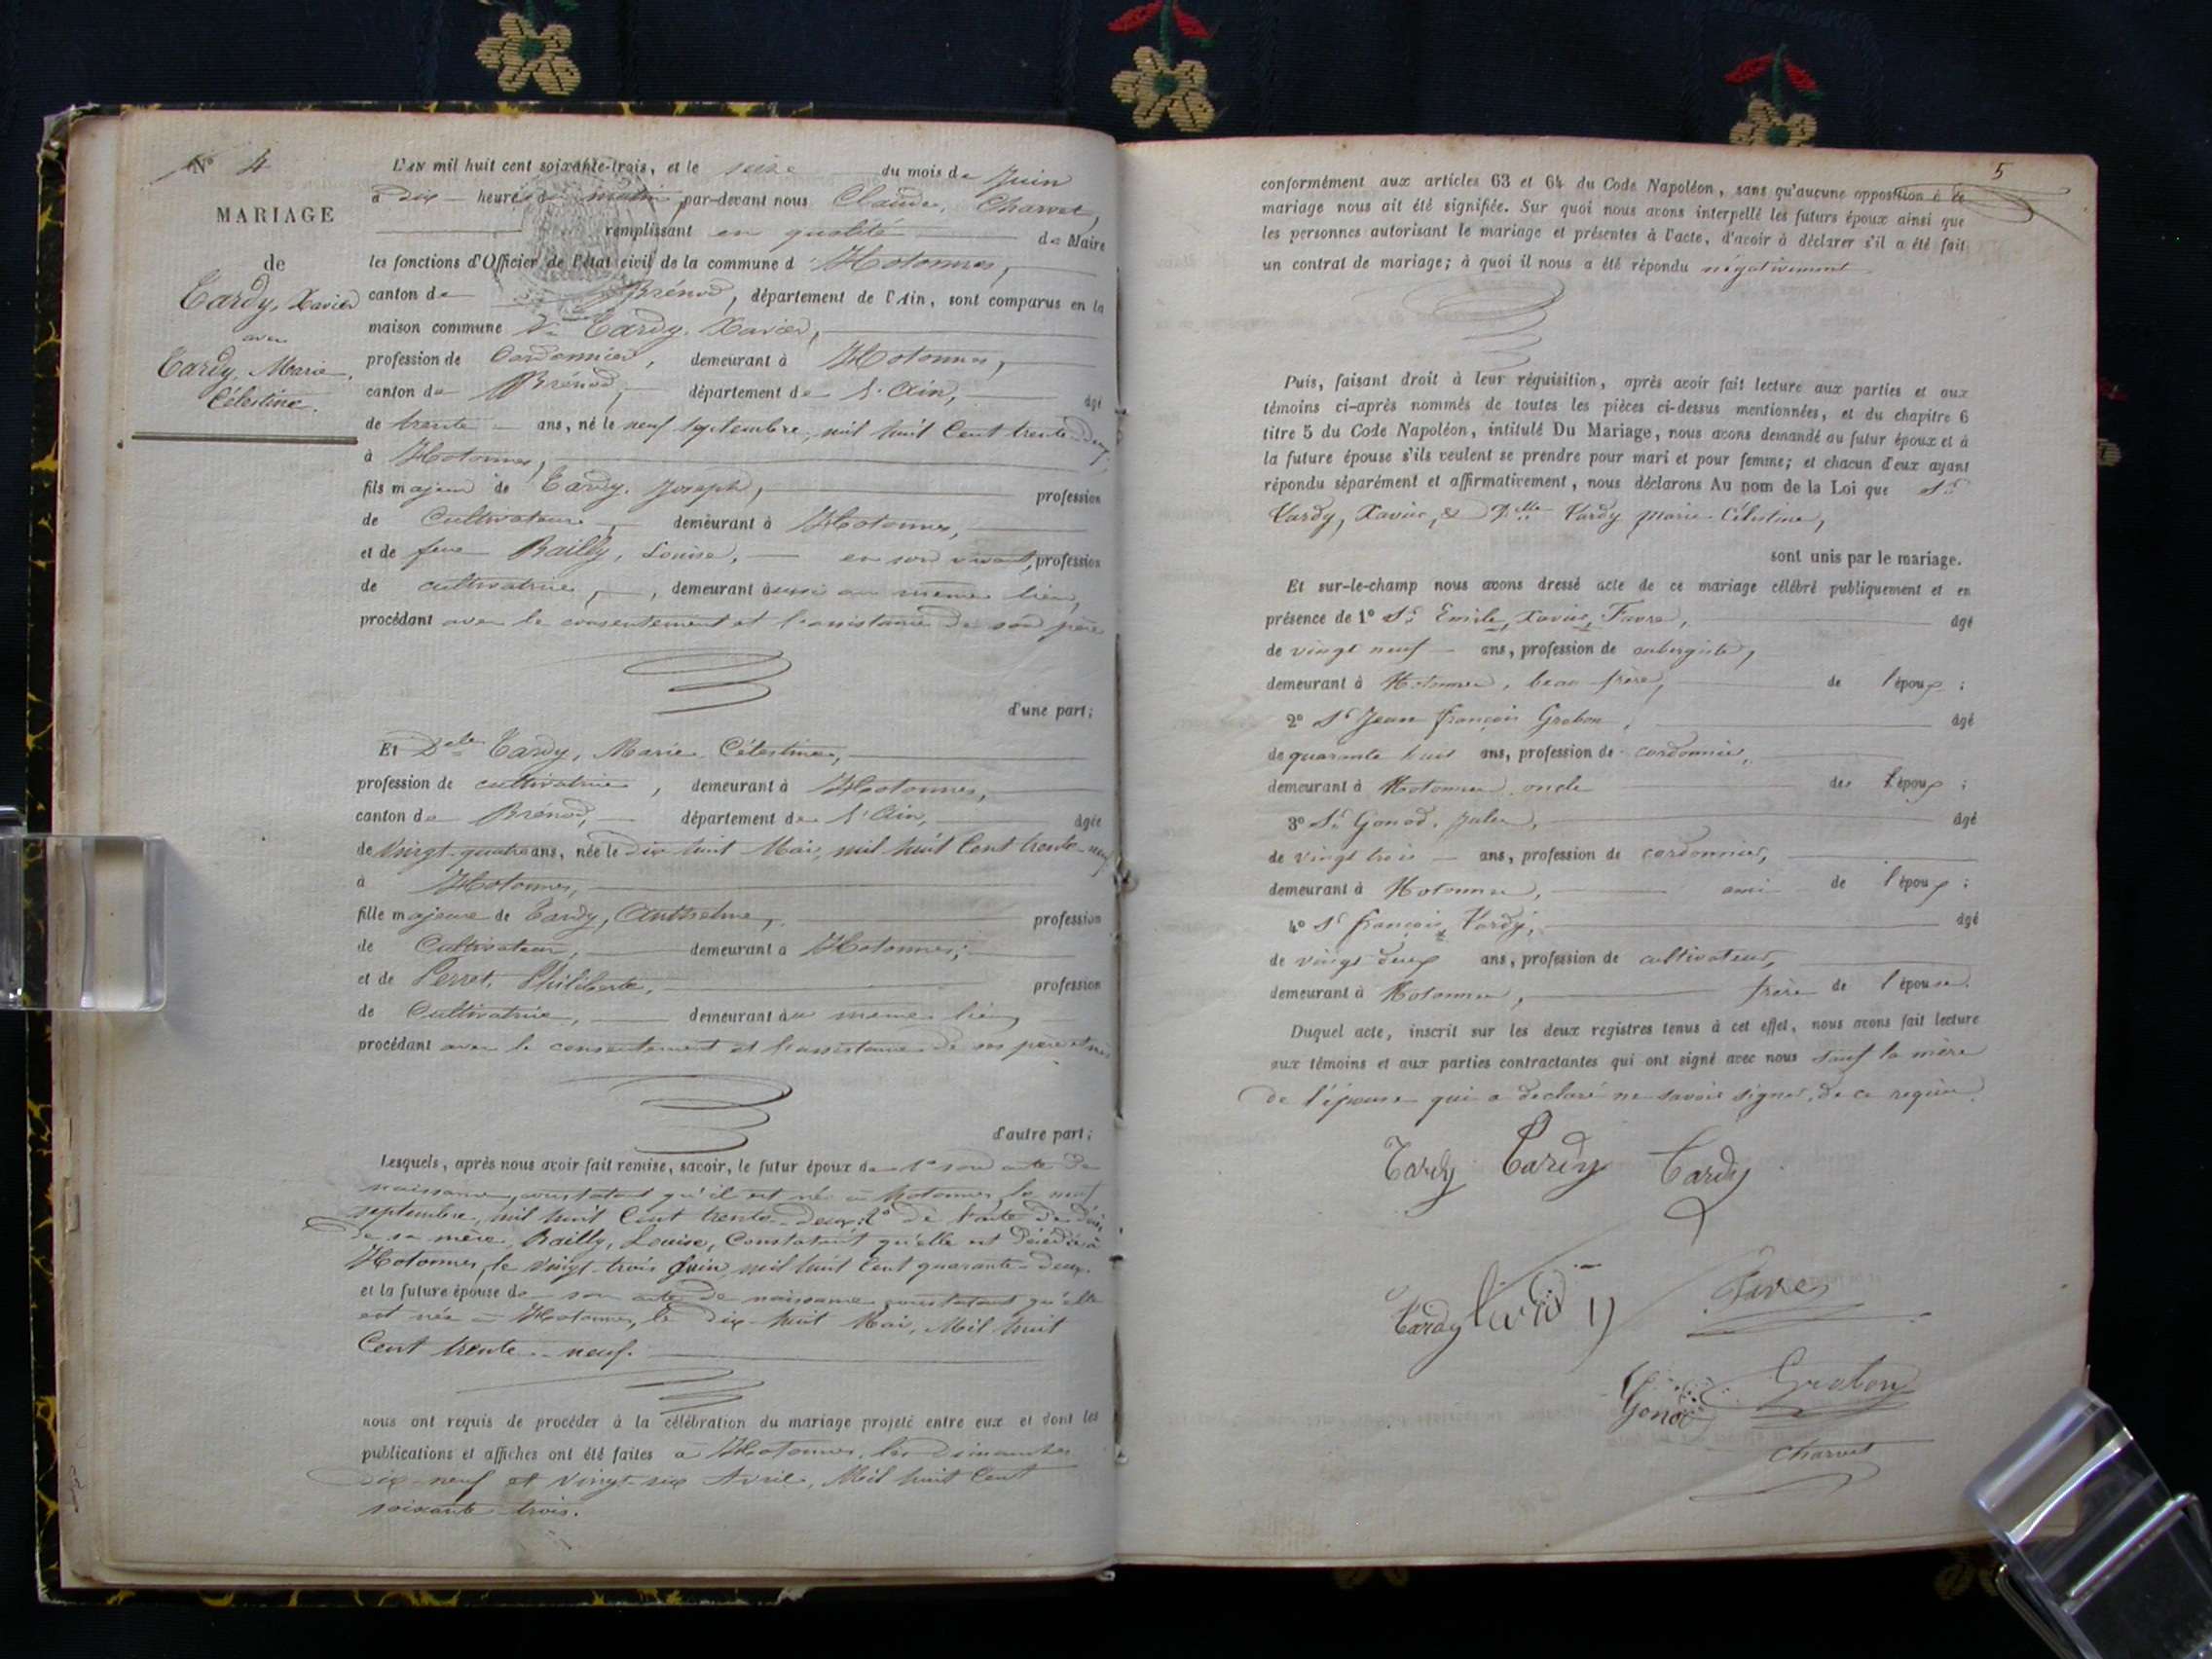 N° 4
MARIAGE
de
Tardy, Xavier
avec
Tardy, Marie
Célestine.
L'AN mil huit cent soixante-trois, et le seize du mois de Juin
à dix heures du matin par-devant nous Claude, Charvet,
remplissant en qualité de Maire
les fonctions d'Officier de l'état civil de la commune d'Hotonnes,
canton de Brénod, département de l'Ain, sont comparus en la
maison commune Sr Tardy, Xavier,
profession de Cordonnier, demeurant à Hotonnes,
canton de Brénod, département de l'Ain, âgé
de trente ans, né le neuf septembre, mil huit Cent trente-deux,
à Hotonnes,
fils majeur de Tardy, Joseph, profession
de Cultivateur, demeurant à Hotonnes,
et de feue Bailly, Louise, en son vivant, profession
de cultivatrice, demeurant aussi au même lieu,
procédant avec le consentement et l'assistance de son père
d'une part;
Et Delle Tardy, Marie Célestine,
profession de cultivatrice, demeurant à Hotonnes,
canton de Brénod, département de l'Ain, âgée
de Vingt-quatre ans, née le dix huit Mai, mil huit Cent trente-neuf
à Hotonnes,
fille majeure de Tardy, Anthelme, profession
de Cultivateur, demeurant à Hotonnes;
et de Perret, Philiberte, profession
de Cultivatrice, demeurant au même lieu,
procédant avec le consentement et l'assistance de ses père et mère
d'autre part;
Lesquels, après nous avoir fait remise, savoir, le futur époux de 1° son acte de
naissance, constatant qu'il est né à Hotonnes, le neuf
septembre, mil huit Cent trente-deux; 2° de l'acte de décès
de sa mère, Bailly, Louise, Constatant qu'elle est décédée à
Hotonnes, le Vingt-trois Juin, mil huit Cent quarante-deux.
et la future épouse de son acte de naissance, constatant qu'elle
est née à Hotonnes, le dix-huit Mai, Mil huit
Cent trente-neuf.
nous ont requis de procéder à la célébration du mariage projeté entre eux et dont les
publications et affiches ont été faites à Hotonnes, les dimanches
dix-neuf et Vingt-six Avril, Mil huit Cent
soixante-trois.
5
conformément aux articles 63 et 64 du Code Napoléon, sans qu'aucune opposition à ce
mariage nous ait été signifiée. Sur quoi nous avons interpellé les futurs époux ainsi que
les personnes autorisant le mariage et présentes à l'acte, d'avoir à déclarer s'il a été fait
un contrat de mariage; à quoi il nous a été répondu négativement
Puis, faisant droit à leur réquisition, après avoir fait lecture aux parties et aux
témoins ci-après nommés de toutes les pièces ci-dessus mentionnées, et du chapitre 6
titre 5 du Code Napoléon, intitulé Du Mariage, nous avons demandé au futur époux et à
la future épouse s'ils veulent se prendre pour mari et pour femme; et chacun d'eux ayant
répondu séparément et affirmativement, nous déclarons Au nom de la Loi que Sr
Tardy, Xavier, & Delle Tardy Marie-Célestine,
sont unis par le mariage.
Et sur-le-champ nous avons dressé acte de ce mariage célébré publiquement et en
présence de 1° Sr Emile, Xavier, Favre, âgé
de vingt neuf ans, profession de aubergiste,
demeurant à Hotonnes, beau frère, de l'époux;
2° Sr Jean François Grobon, âgé
de quarante huit ans, profession de cordonnier,
demeurant à Hotonnes oncle des époux;
3° Sr Gonod, Jules, âgé
de vingt trois ans, profession de cordonnier,
demeurant à Hotonnes, ami de l'époux;
4° Sr François, Tardy, âgé
de vingt deux ans, profession de cultivateur,
demeurant à Hotonnes, frère de l'épouse.
Duquel acte, inscrit sur les deux registres tenus à cet effet, nous avons fait lecture
aux témoins et aux parties contractantes qui ont signé avec nous sauf la mère
de l'épouse qui a déclaré ne savoir signer, de ce requise.
Tardy Tardy Tardy
Tardy Tardy Favre
Gonod Grobon
Charvet